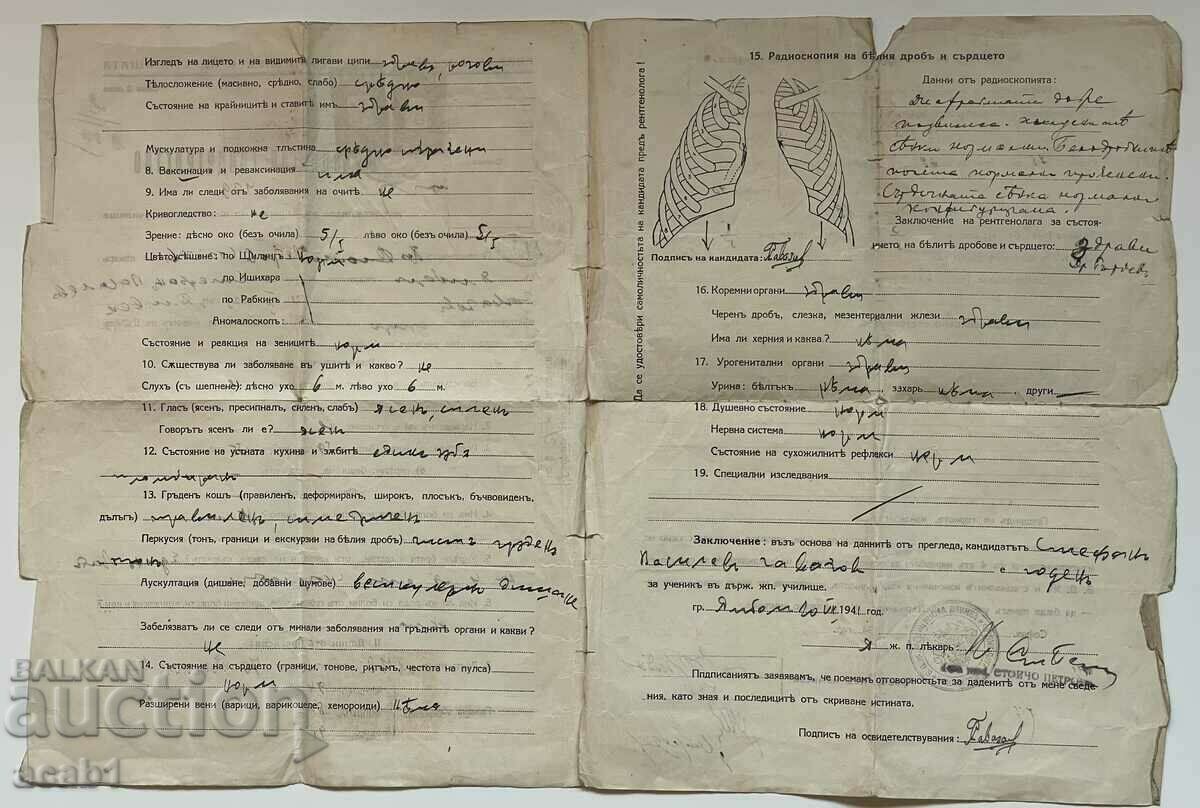 Изгледъ на лицето и на видимитѣ лигави ципи здрави, розови
Тѣлосложение (масивно, срѣдно, слабо) срѣдно
Състояние на крайницитѣ и ставитѣ имъ здрави
Мускулатура и подкожна тлъстина срѣдно изразени
8. Ваксинация и реваксинация има
9. Има ли следи отъ заболявания на очитѣ не
Кривогледство: не
Зрение: дѣсно око (безъ очила) 5/5 лѣво око (безъ очила) 5/5
Цвѣтоусѣщане: по Щилингъ норм
по Ишихара
по Рабкинъ
Аномалоскопъ:
Състояние и реакция на зеницитѣ норм
10. Сѫществува ли заболяване въ ушитѣ и какво? не
Слухъ (съ шепнене): дѣсно ухо 6 м. лѣво ухо 6 м.
11. Гласъ (ясенъ, пресипналъ, силенъ, слабъ) ясенъ, силенъ
Говорътъ ясенъ ли е? ясенъ
12. Състояние на устната кухина и зѫбитѣ единъ зѫбъ
пломбиранъ
13. Гръденъ кошъ (правиленъ, деформиранъ, широкъ, плосъкъ, бъчвовиденъ,
дълъгъ) правиленъ, симетриченъ
Перкусия (тонъ, граници и екскурзии на бѣлия дробъ) чистъ грѫденъ
тонъ
Аускултация (дишане, добавни шумове) везикулярно дишане
Забелязватъ ли се следи отъ минали заболявания на гръднитѣ органи и какви?
не
14. Състояние на сърдцето (граници, тонове, ритъмъ, честота на пулса)
норм
Разширени вени (варици, варикоцеле, хемороиди) нѣма
Да се удостовѣри самоличностьта на кандидата предъ рентгенолога!
15. Радиоскопия на бѣлия дробъ и сърдцето
Данни отъ радиоскопията:
Диафрагмата добре
подвижна.
нормални
нормални
Сърдечната сѣнка нормална
Заключение на рентгенолога за състоя-
нието на бѣлитѣ дробове и сърдцето: здрави
Подпись на кандидата: Гавазов
16. Коремни органи здрави
Черенъ дробъ, слезка, мезентериални жлези здрави
Има ли херния и каква? нѣма
17. Урогенитални органи здрави
Урина: бѣлтъкъ нѣма, захаръ нѣма, други
18. Душевно състояние норм
Нервна система норм
Състояние на сухожилнитѣ рефлекси норм
19. Специални изследвания
Заключение: възъ основа на даннитѣ отъ прегледа, кандидатътъ Стефанъ
Василевъ Гавазов е годенъ
за ученикъ въ държ. жп. училище.
гр. Ямбол 20 VII 1941 год.
Я ж. п. лѣкарь:
СТОЙЧО ПЕТРОВ
Пдписаниятъ заявявамъ, че поемамъ отговорностьта за даденитѣ отъ мене сведе-
ния, като зная и последицитѣ отъ скриване истината.
Подписъ на освидетелствувания: Гавазов
BALKAN
auction
acab1